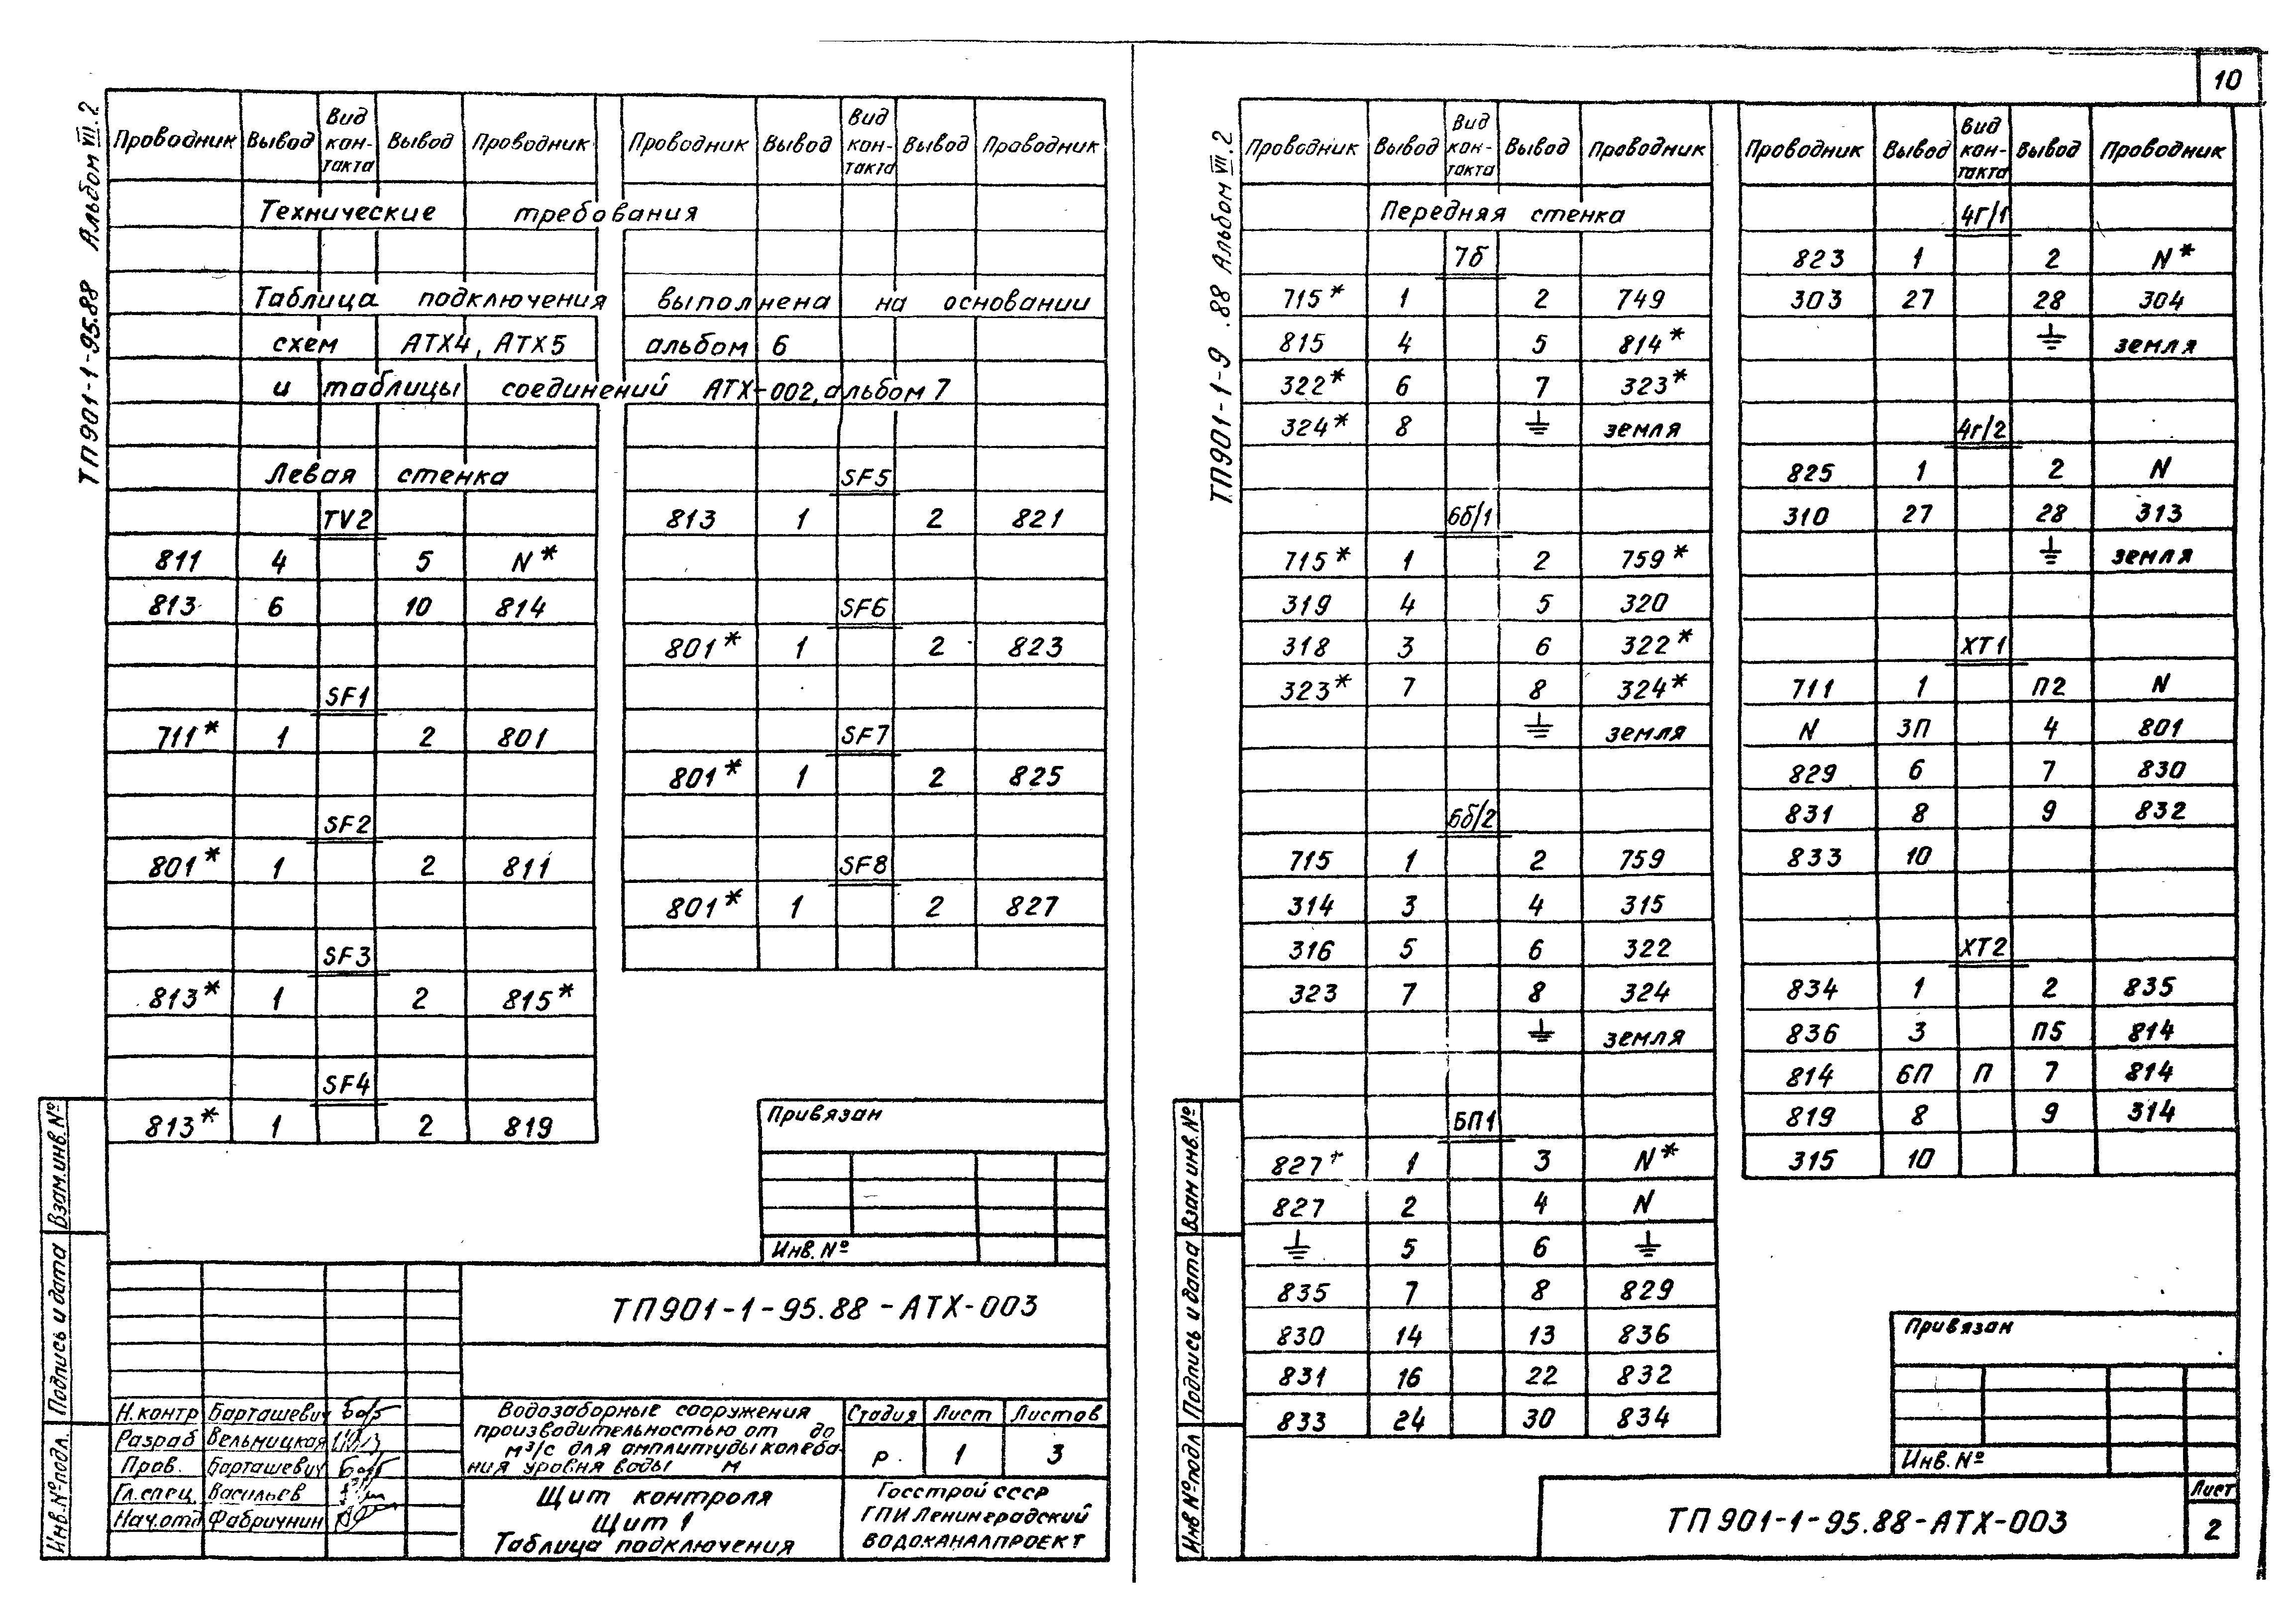 10
ТП901-1-95.88 Альбом VIII.2
Проводник Вывод Вид кон-такта Вывод Проводник
Технические требования
Таблица подключения выполнена на основании
схем АТХ4, АТХ5 альбом 6
и таблицы соединений АТХ-002, альбом 7
Левая стенка
TV2
811 4 5 N*
813 6 10 814
SF1
711* 1 2 801
SF2
801* 1 2 811
SF3
813* 1 2 815*
SF4
813* 1 2 819
Проводник Вывод Вид кон-такта Вывод Проводник
SF5
813 1 2 821
SF6
801* 1 2 823
SF7
801* 1 2 825
SF8
801* 1 2 827
Привязан
Инв. №
ТП901-1-95.88-АТХ-003
Н.контр Барташевич
Разраб Вельмицкая
Пров. Барташевич
Гл.спец. Васильев
Нач.отд Фабричнин
Водозаборные сооружения
производительностью от до
м³/с для амплитуды колеба-
ния уровня воды м
Стадия Лист Листов
Р 1 3
Щит контроля
Щит 1
Таблица подключения
Госстрой СССР
ГПИ Ленинградский
ВОДОКАНАЛПРОЕКТ
Взам.инв.№
Подпись и дата
Инв.№подл.
ТП901-1-9 .88 Альбом VIII.2
Проводник Вывод Вид кон-такта Вывод Проводник
Передняя стенка
7б
715* 1 2 749
815 4 5 814*
322* 6 7 323*
324* 8 ⏚ земля
6б/1
715* 1 2 759*
319 4 5 320
318 3 6 322*
323* 7 8 324*
⏚ земля
6б/2
715 1 2 759
314 3 4 315
316 5 6 322
323 7 8 324
⏚ земля
БП1
827* 1 3 N*
827 2 4 N
⏚ 5 6 ⏚
835 7 8 829
830 14 13 836
831 16 22 832
833 24 30 834
Проводник Вывод Вид кон-такта Вывод Проводник
4г/1
823 1 2 N*
303 27 28 304
⏚ земля
4г/2
825 1 2 N
310 27 28 313
⏚ земля
XT1
711 1 П2 N
N 3П 4 801
829 6 7 830
831 8 9 832
833 10
XT2
834 1 2 835
836 3 П5 814
814 6П П 7 814
819 8 9 314
315 10
Привязан
Инв. №
ТП901-1-95.88-АТХ-003
Лист
2
Взам инв.№
Подпись и дата
Инв №подл